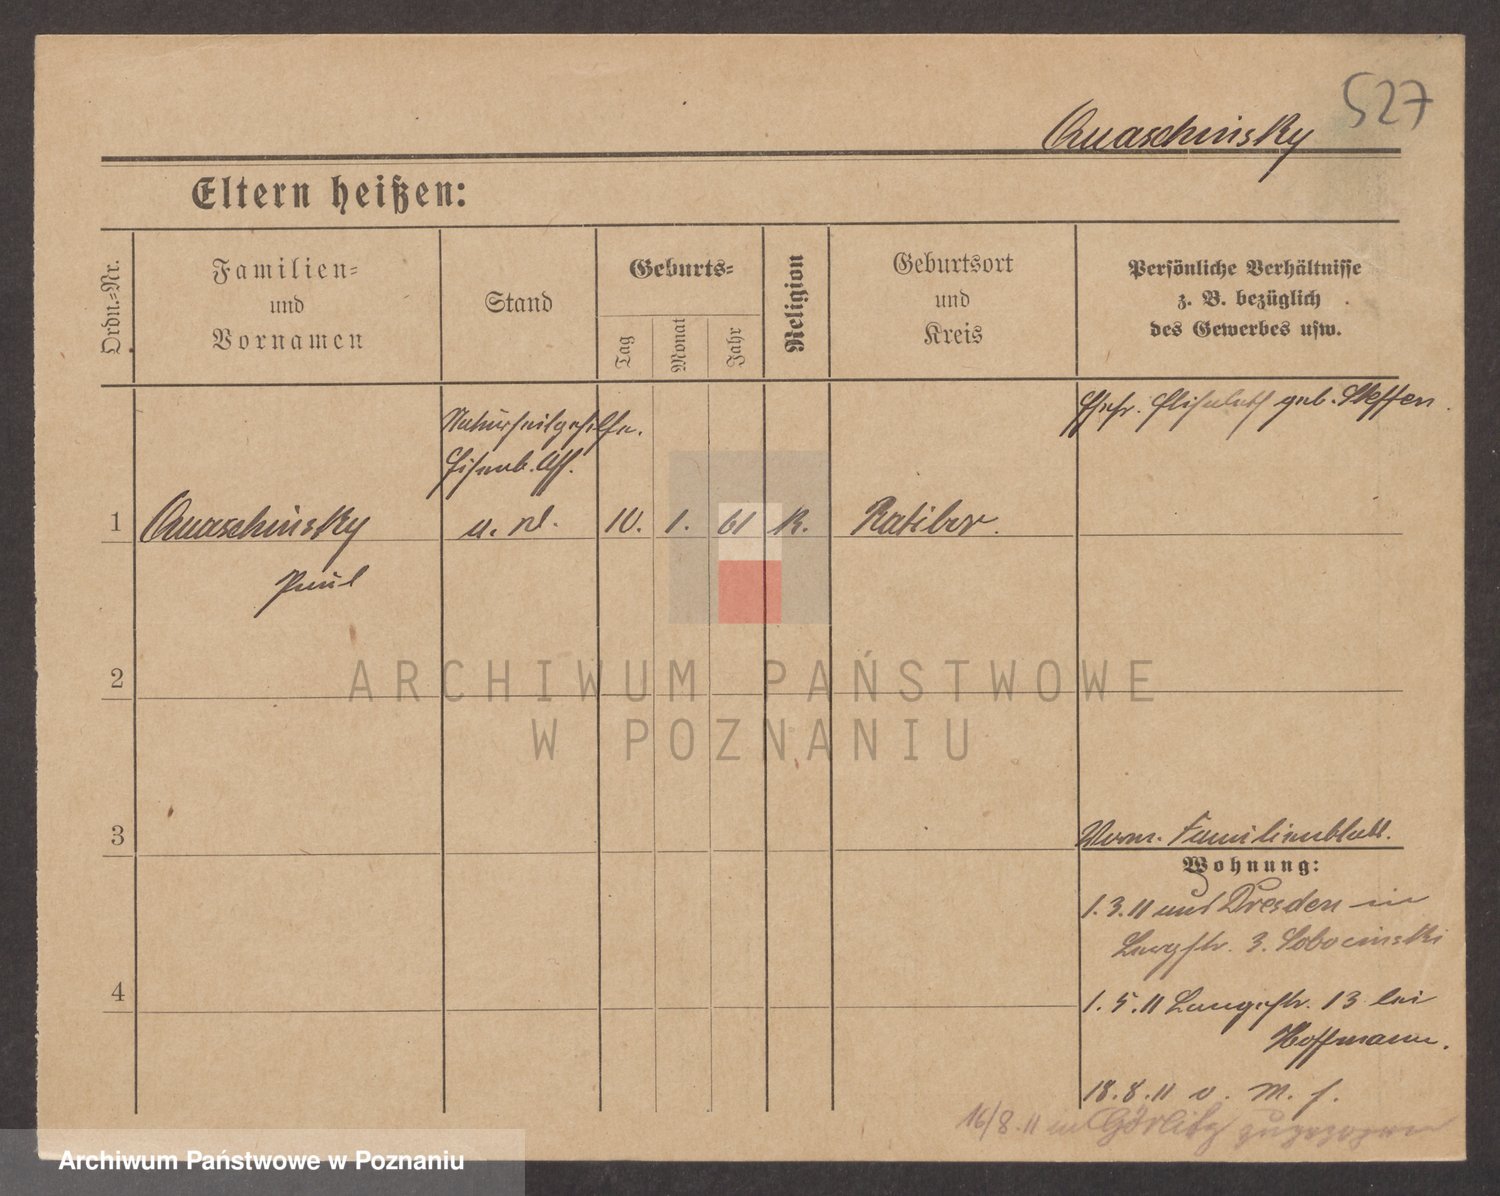 527
Quaschinsky
Eltern heißen:
Ordn.-Nr.
Familien-
und
Vornamen
Stand
Geburts-
Tag
Monat
Jahr
Religion
Geburtsort
und
Kreis
Persönliche Verhältnisse
z. B. bezüglich
des Gewerbes usw.
Ehefr. Elisabeth geb. Steffen.
Naturheilgehilfe.
Eisenb. Ass.
1 Quaschinsky a. D. 10. 1. 61 K. Ratibor.
Paul
2
ARCHIWUM PAŃSTWOWE
W POZNANIU
3
Vorm. Familienblatt.
Wohnung:
1.3.11 aus Dresden in
3. Lobocinski
4
1.5.11 Langestr. 13 bei
Hoffmann.
18.8.11 v. M. f.
16/8.11 in Görlitz zugezogen
Archiwum Państwowe w Poznaniu